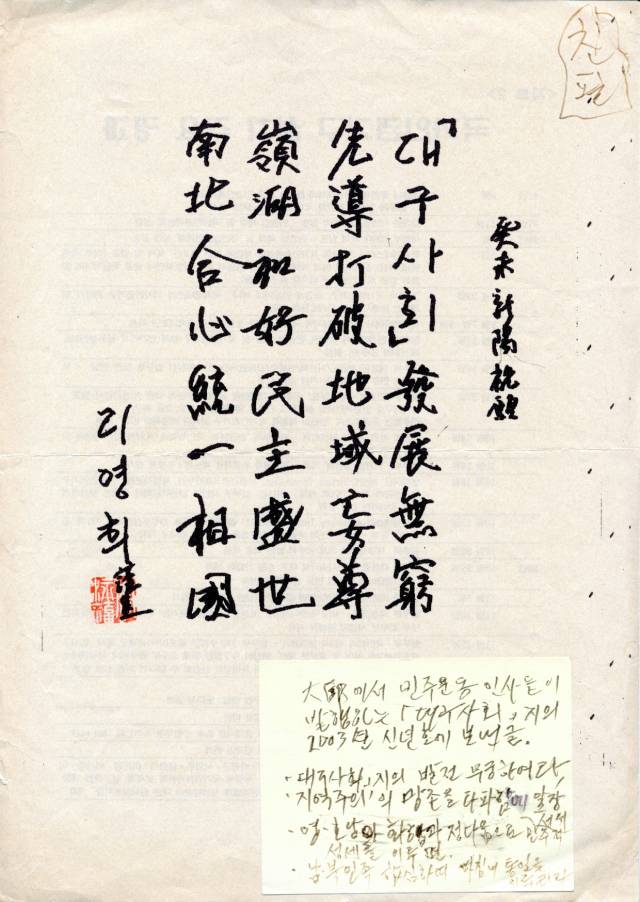 친필
癸未新陽祝願
「대구사회」發展無窮
先導打破地域妄尊
嶺湖和好民主盛世
南北合心統一祖國
리영희
大邱에서 민주운동 인사들이
발행하는 「대구사회」지의
2003년 신년호에 보낸 글.
·「대구사회」지의 발전 무궁하여라
·'지역주의'의 망존을 타파함에 앞장
·영·호남이 화합과 정다움으로 민주적
성세를 이루면.
·남·북민족 합심하여 마침내 통일을